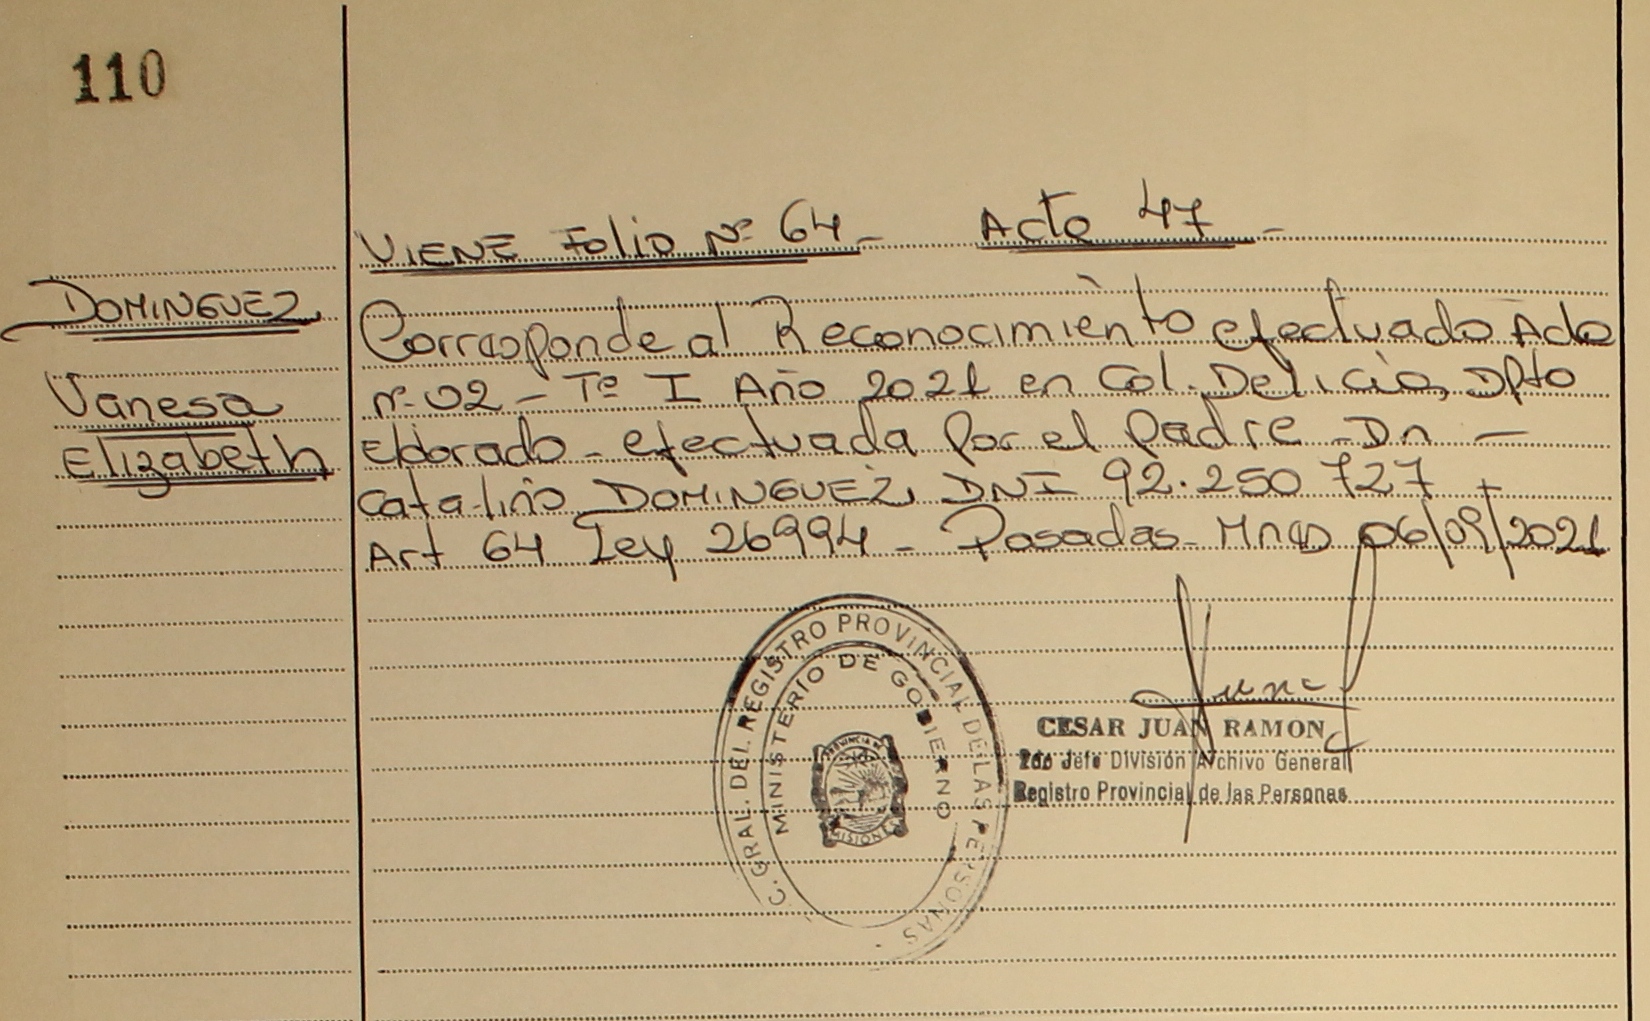 110
VIENE Folio Nº 64 - Acta 47 -
DOMINGUEZ
Vanesa
Elizabeth
Corresponde al Reconocimiento efectuado Acta
nº 02 - Tº I Año 2021 en Col. Delicia, Dpto
Eldorado - efectuada por el padre - Dn -
Catalino DOMINGUEZ, DNI 92.250 727 -
Art 64 Ley 26994 - Posadas - Mnes 06/09/2021
C. GRAL. DEL REGISTRO PROVINCIAL DE LAS PERSONAS
MINISTERIO DE GOBIERNO
PROVINCIA DE
MISIONES
CESAR JUAN RAMON
2do Jefe División Archivo General
Registro Provincial de las Personas